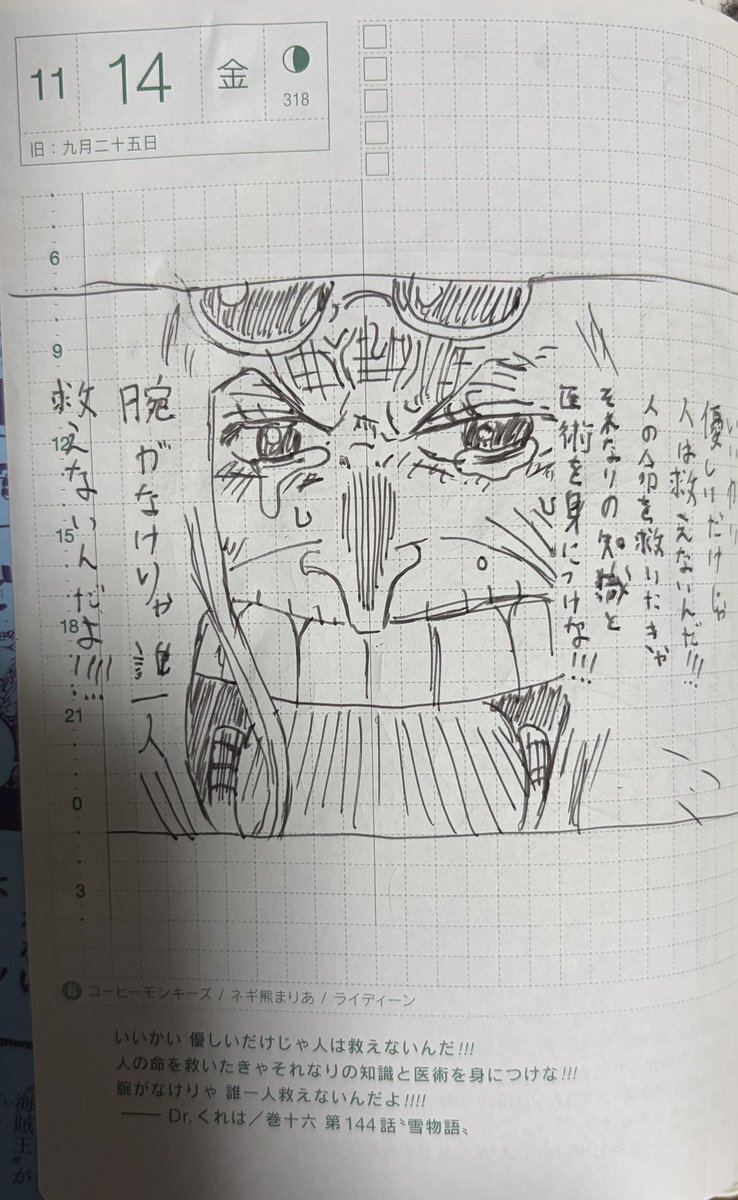 11
14
金
318
旧：九月二十五日
6
9
12
15
18
21
0
3
いいかい
優しいだけじゃ
人は救えないんだ!!!
人の命を救いたきゃ
それなりの知識と
医術を身につけな!!!
腕がなけりゃ誰一人
救えないんだよ!!!!
B コーヒーモンキーズ / ネギ熊まりあ / ライディーン
いいかい 優しいだけじゃ人は救えないんだ!!!
人の命を救いたきゃそれなりの知識と医術を身につけな!!!
腕がなけりゃ 誰一人救えないんだよ!!!!
—— Dr.くれは／巻十六 第144話〝雪物語〟
〝海賊王〟が